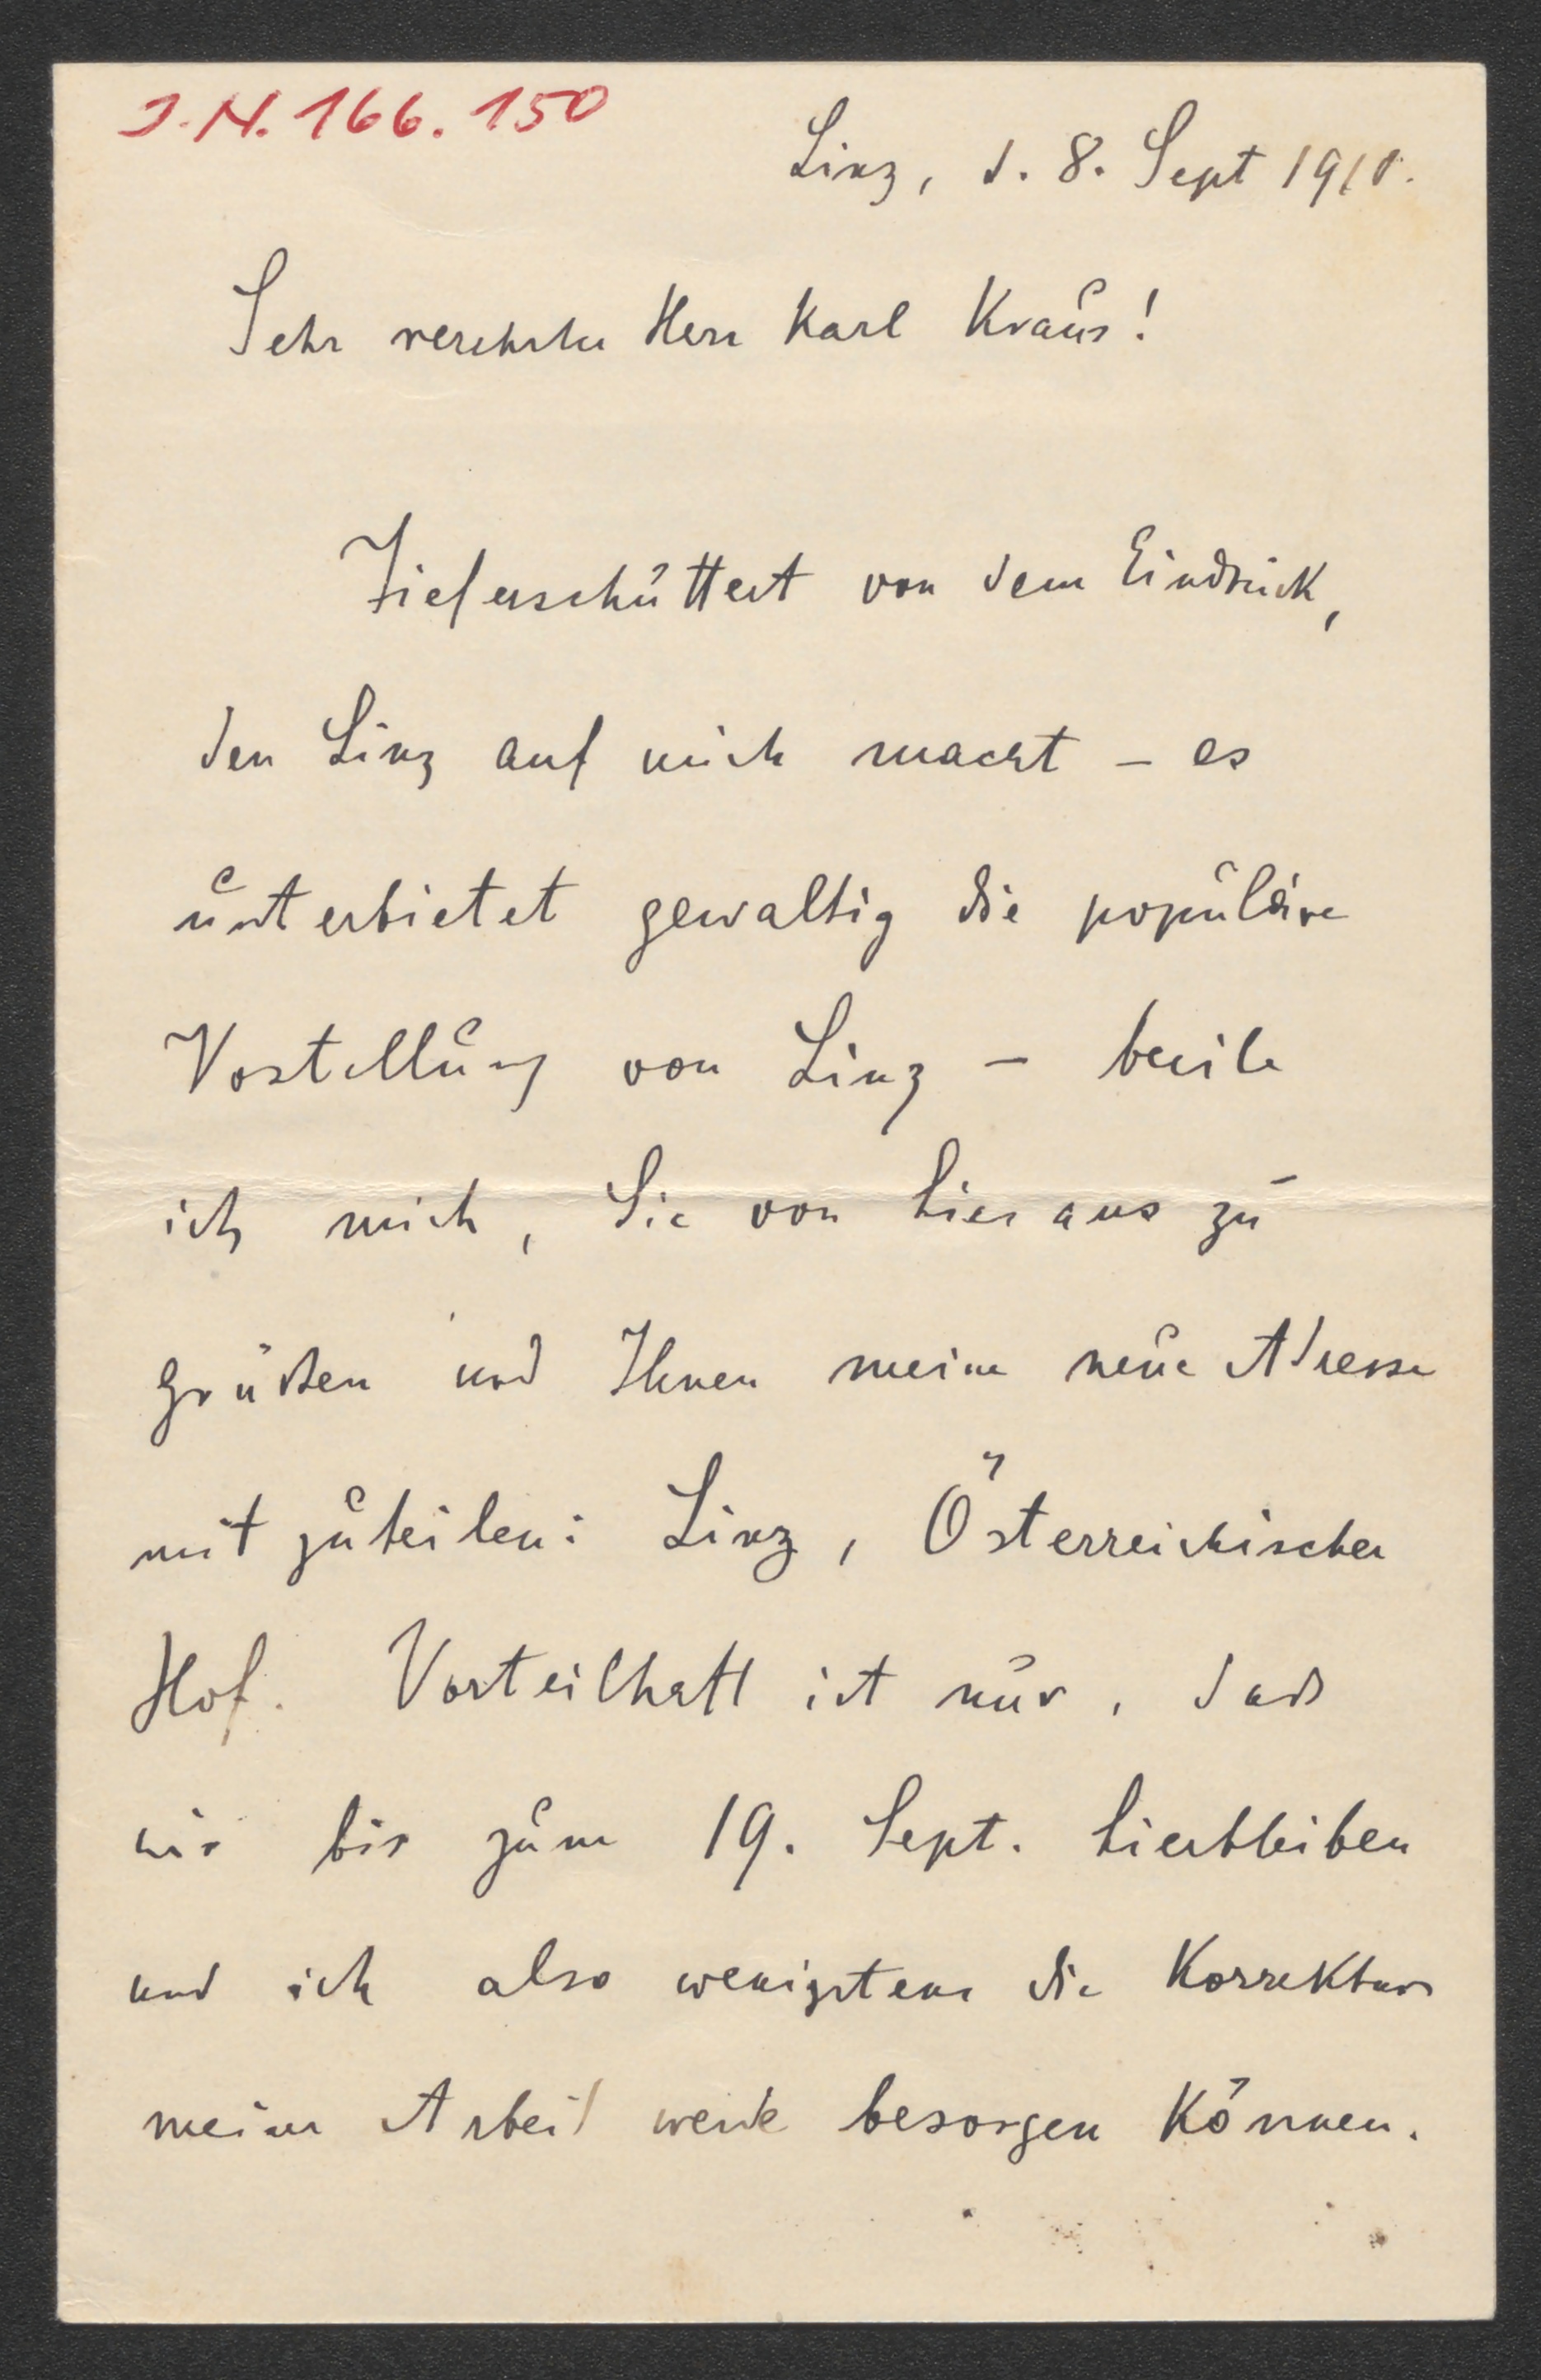 J.N. 166.150
Linz, d. 8. Sept 1910.
Sehr verehrter Herr Karl Kraus!
Tieferschüttert von dem Eindruck,
den Linz auf mich macht – es
unterbietet gewaltig die populäre
Vorstellung von Linz – beeile
ich mich, Sie von hier aus zu
grüßen und Ihnen meine neue Adresse
mit zuteilen: Linz, Österreichischer
Hof. Vorteilhaft ist nur, daß
wir bis zum 19. Sept. hierbleiben
und ich also wenigstens die Korrektur
meiner Arbeit werde besorgen können.